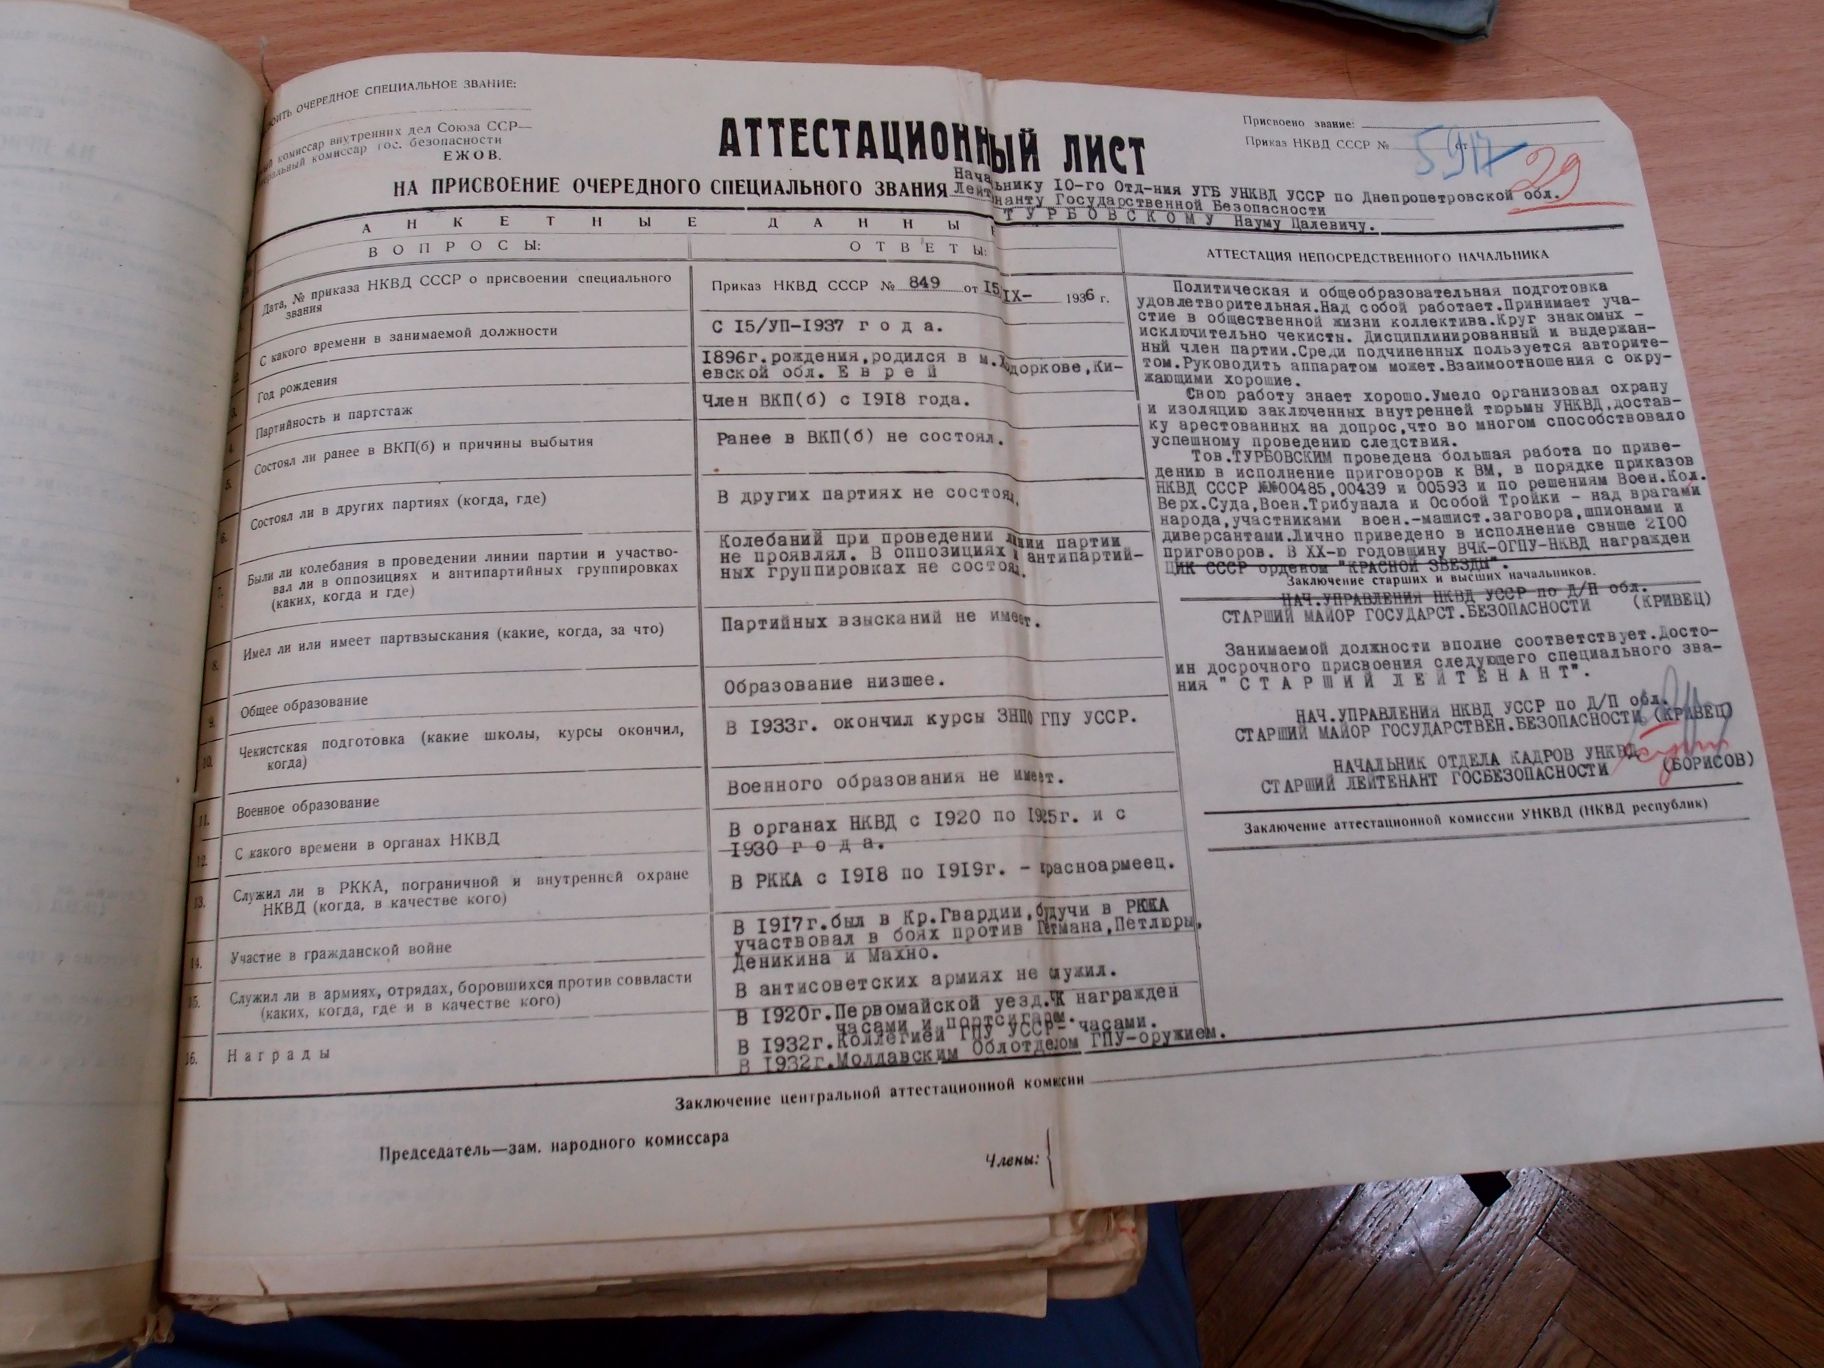 ОЧЕРЕДНОЕ СПЕЦИАЛЬНОЕ ЗВАНИЕ:
комиссар внутренних дел Союза ССР—
комиссар гос. безопасности
ЕЖОВ.
Присвоено звание:
Приказ НКВД СССР № 5917 от
29
АТТЕСТАЦИОННЫЙ ЛИСТ
НА ПРИСВОЕНИЕ ОЧЕРЕДНОГО СПЕЦИАЛЬНОГО ЗВАНИЯ
Начальнику 10-го Отд-ния УГБ УНКВД УССР по Днепропетровской обл.
Лейтенанту Государственной Безопасности
ТУРБОВСКОМУ Науму Цалевичу.
АНКЕТНЫЕ ДАННЫЕ
ВОПРОСЫ: ОТВЕТЫ:
Дата, № приказа НКВД СССР о присвоении специального
звания
Приказ НКВД СССР № 849 от 15/IX- 1936 г.
С какого времени в занимаемой должности
С 15/УП-1937 года.
Год рождения
1896г.рождения,родился в м.Ходоркове,Ки-
евской обл. Еврей
Партийность и партстаж
Член ВКП(б) с 1918 года.
Состоял ли ранее в ВКП(б) и причины выбытия
Ранее в ВКП(б) не состоял.
Состоял ли в других партиях (когда, где)
В других партиях не состоял.
Были ли колебания в проведении линии партии и участво-
вал ли в оппозициях и антипартийных группировках
(каких, когда и где)
Колебаний при проведении линии партии
не проявлял. В оппозициях и антипартий-
ных группировках не состоял.
Имел ли или имеет партвзыскания (какие, когда, за что)
Партийных взысканий не имеет.
Общее образование
Образование низшее.
Чекистская подготовка (какие школы, курсы окончил,
когда)
В 1933г. окончил курсы ЗНПО ГПУ УССР.
Военное образование
Военного образования не имеет.
С какого времени в органах НКВД
В органах НКВД с 1920 по 1925г. и с
1930 года.
13. Служил ли в РККА, пограничной и внутренней охране
НКВД (когда, в качестве кого)
В РККА с 1918 по 1919г. - красноармеец.
14. Участие в гражданской войне
В 1917г.был в Кр.Гвардии,будучи в РККА
участвовал в боях против Гетмана,Петлюры,
Деникина и Махно.
15. Служил ли в армиях, отрядах, боровшихся против соввласти
(каких, когда, где и в качестве кого)
В антисоветских армиях не служил.
16. Награды
В 1920г.Первомайской уезд.ЧК награжден
часами и портсигаром.
В 1932г.Коллегией ГПУ УССР- часами.
В 1932г.Молдавским Облотделом ГПУ-оружием.
АТТЕСТАЦИЯ НЕПОСРЕДСТВЕННОГО НАЧАЛЬНИКА
Политическая и общеобразовательная подготовка
удовлетворительная.Над собой работает.Принимает уча-
стие в общественной жизни коллектива.Круг знакомых -
исключительно чекисты. Дисциплинированный и выдержан-
ный член партии.Среди подчиненных пользуется авторите-
том.Руководить аппаратом может.Взаимоотношения с окру-
жающими хорошие.
Свою работу знает хорошо.Умело организовал охрану
и изоляцию заключенных внутренней тюрьмы УНКВД,достав-
ку арестованных на допрос,что во многом способствовало
успешному проведению следствия.
Тов.ТУРБОВСКИМ проведена большая работа по приве-
дению в исполнение приговоров к ВМ, в порядке приказов
НКВД СССР №№00485,00439 и 00593 и по решениям Воен.Кол.
Верх.Суда,Воен.Трибунала и Особой Тройки - над врагами
народа,участниками воен.-фашист.заговора,шпионами и
диверсантами.Лично приведено в исполнение свыше 2100
приговоров. В XX-ю годовщину ВЧК-ОГПУ-НКВД награжден
ЦИК СССР орденом "КРАСНОЙ ЗВЕЗДЫ".
Заключение старших и высших начальников.
НАЧ.УПРАВЛЕНИЯ НКВД УССР по Д/П обл.
СТАРШИЙ МАЙОР ГОСУДАРСТ.БЕЗОПАСНОСТИ (КРИВЕЦ)
Занимаемой должности вполне соответствует.Досто-
ин досрочного присвоения следующего специального зва-
ния "СТАРШИЙ ЛЕЙТЕНАНТ".
НАЧ.УПРАВЛЕНИЯ НКВД УССР по Д/П обл.
СТАРШИЙ МАЙОР ГОСУДАРСТВЕН.БЕЗОПАСНОСТИ (КРИВЕЦ)
НАЧАЛЬНИК ОТДЕЛА КАДРОВ УНКВД
СТАРШИЙ ЛЕЙТЕНАНТ ГОСБЕЗОПАСНОСТИ (БОРИСОВ)
Заключение аттестационной комиссии УНКВД (НКВД республик)
Заключение центральной аттестационной комиссии
Председатель—зам. народного комиссара
Члены: